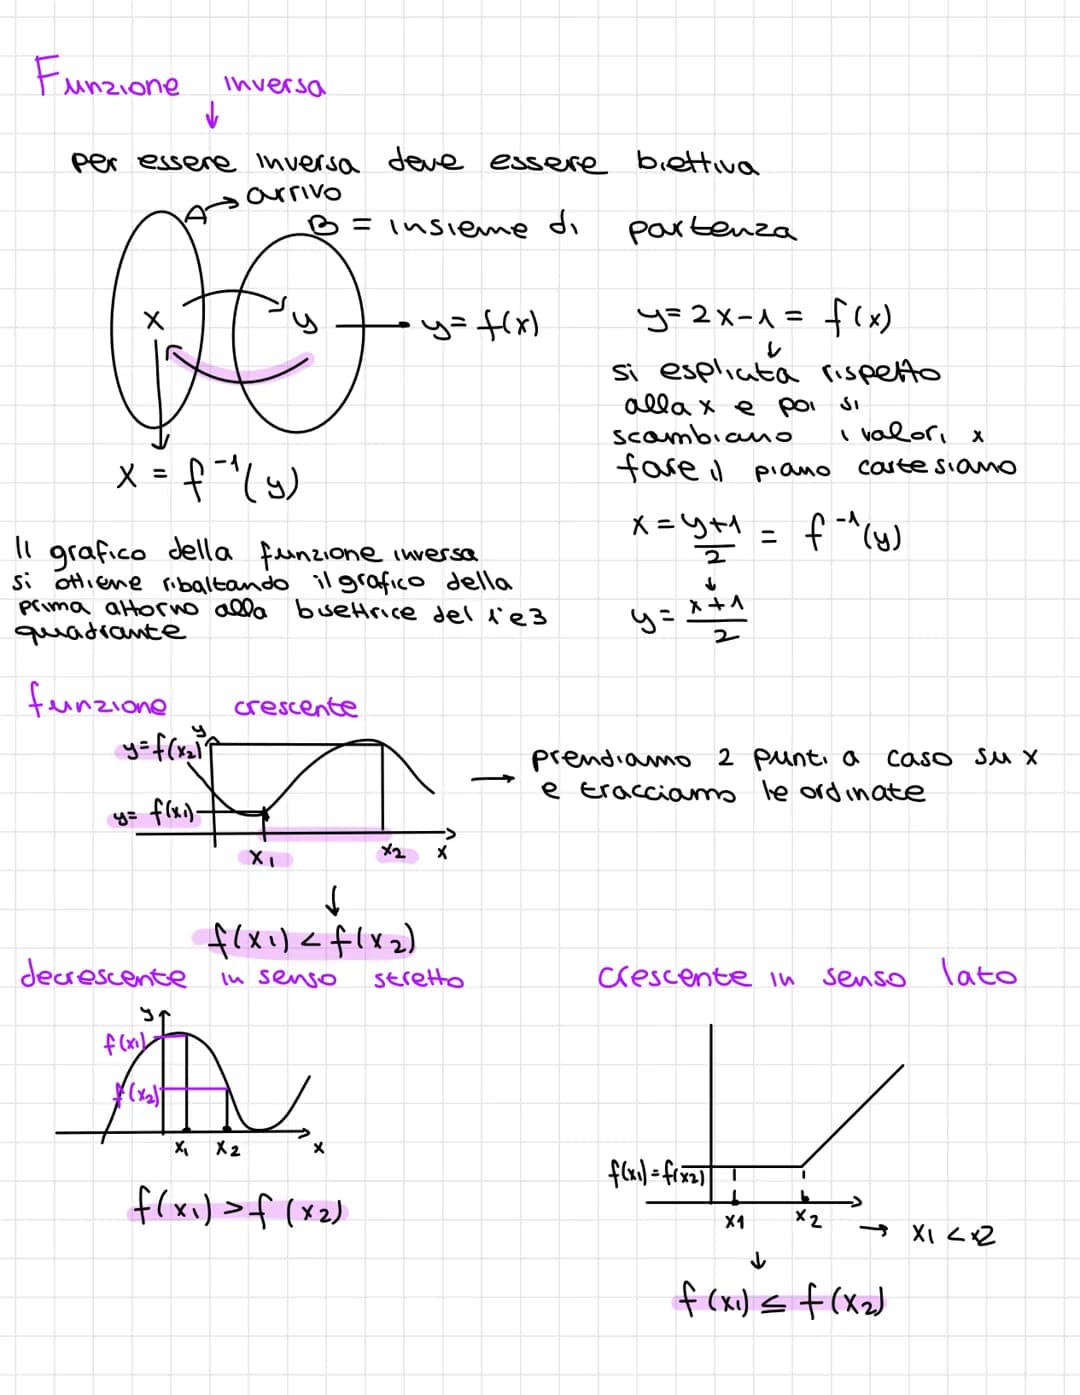 Funzione inversa
↓
per essere inversa deve essere biettiva
A → arrivo
B = insieme di partenza
x
y
y = f(x)
x = f⁻¹(y)
y = 2x-1 = f(x)
↓
si esplicita rispetto
alla x e poi si
scambiano i valori x
fare il piano cartesiano
x = y+1/2 = f⁻¹(y)
↓
y = x+1/2
Il grafico della funzione inversa
si ottiene ribaltando il grafico della
prima attorno alla bisettrice del 1° e 3
quadrante
funzione crescente
y
y=f(x₂)
y= f(x₁)
x₁ x₂ x
→ prendiamo 2 punti a caso su x
e tracciamo le ordinate
↓
f(x₁) < f(x₂)
decrescente in senso stretto
y
f(x₁)
f(x₂)
x₁ x₂ x
f(x₁) > f(x₂)
crescente in senso lato
f(x₁) = f(x₂)
x1 x2 → x₁ < x2
↓
f(x₁) ≤ f(x₂)